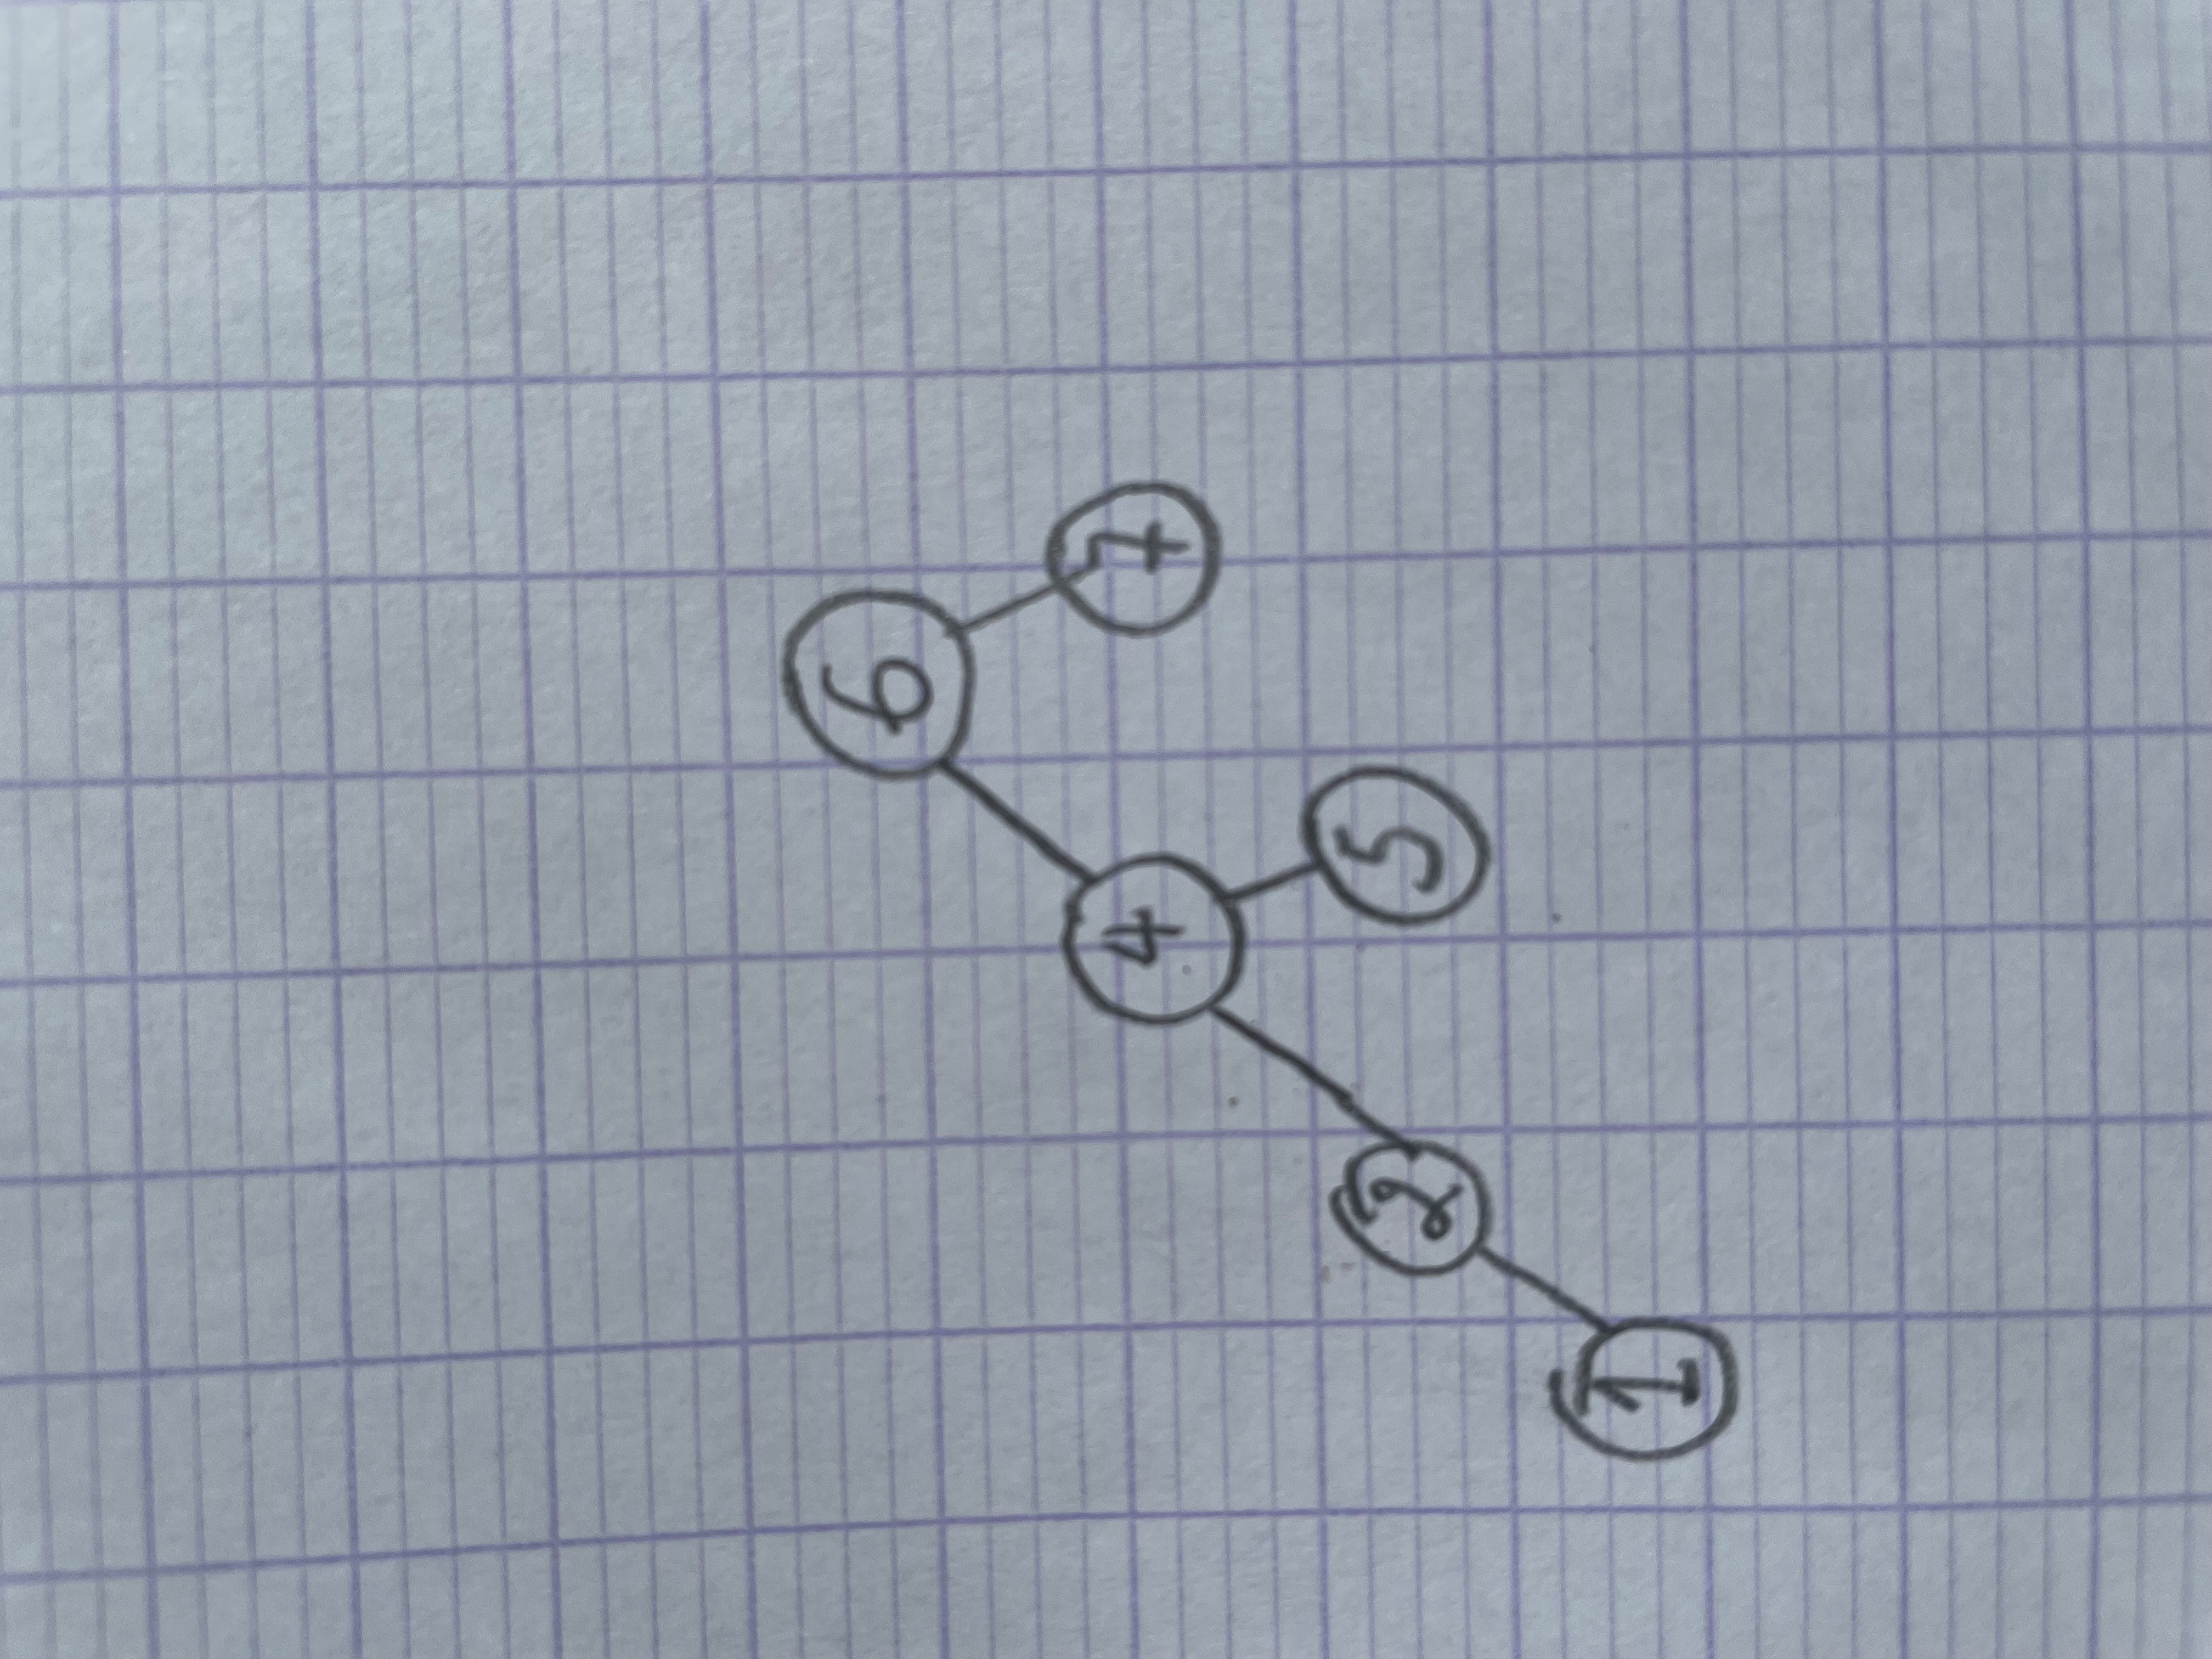 6
4 7
2 5
1